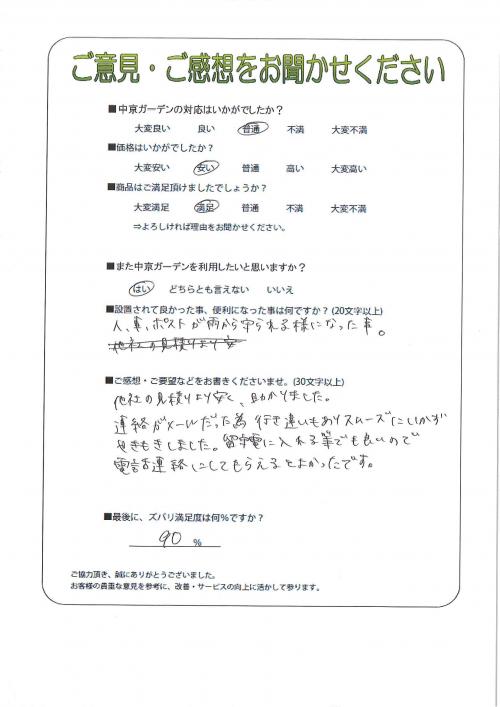 ご意見・ご感想をお聞かせください
■中京ガーデンの対応はいかがでしたか？
大変良い 良い 普通 不満 大変不満
■価格はいかがでしたか？
大変安い 安い 普通 高い 大変高い
■商品はご満足頂けましたでしょうか？
大変満足 満足 普通 不満 大変不満
⇒よろしければ理由をお聞かせください。
■また中京ガーデンを利用したいと思いますか？
はい どちらとも言えない いいえ
■設置されて良かった事、便利になった事は何ですか？(20文字以上)
人、車、ポストが雨から守られる様になった事。
他社の見積りより安
■ご感想・ご要望などをお書きくださいませ。(30文字以上)
他社の見積りより安く、助かりました。
連絡がメールだった為 行き違いもありスムーズにいかず
やきもきしました。留守電に入れる等でも良いので
電話連絡にしてもらえるとよかったです。
■最後に、ズバリ満足度は何％ですか？
90 %
ご協力頂き、誠にありがとうございました。
お客様の貴重な意見を参考に、改善・サービスの向上に活かして参ります。